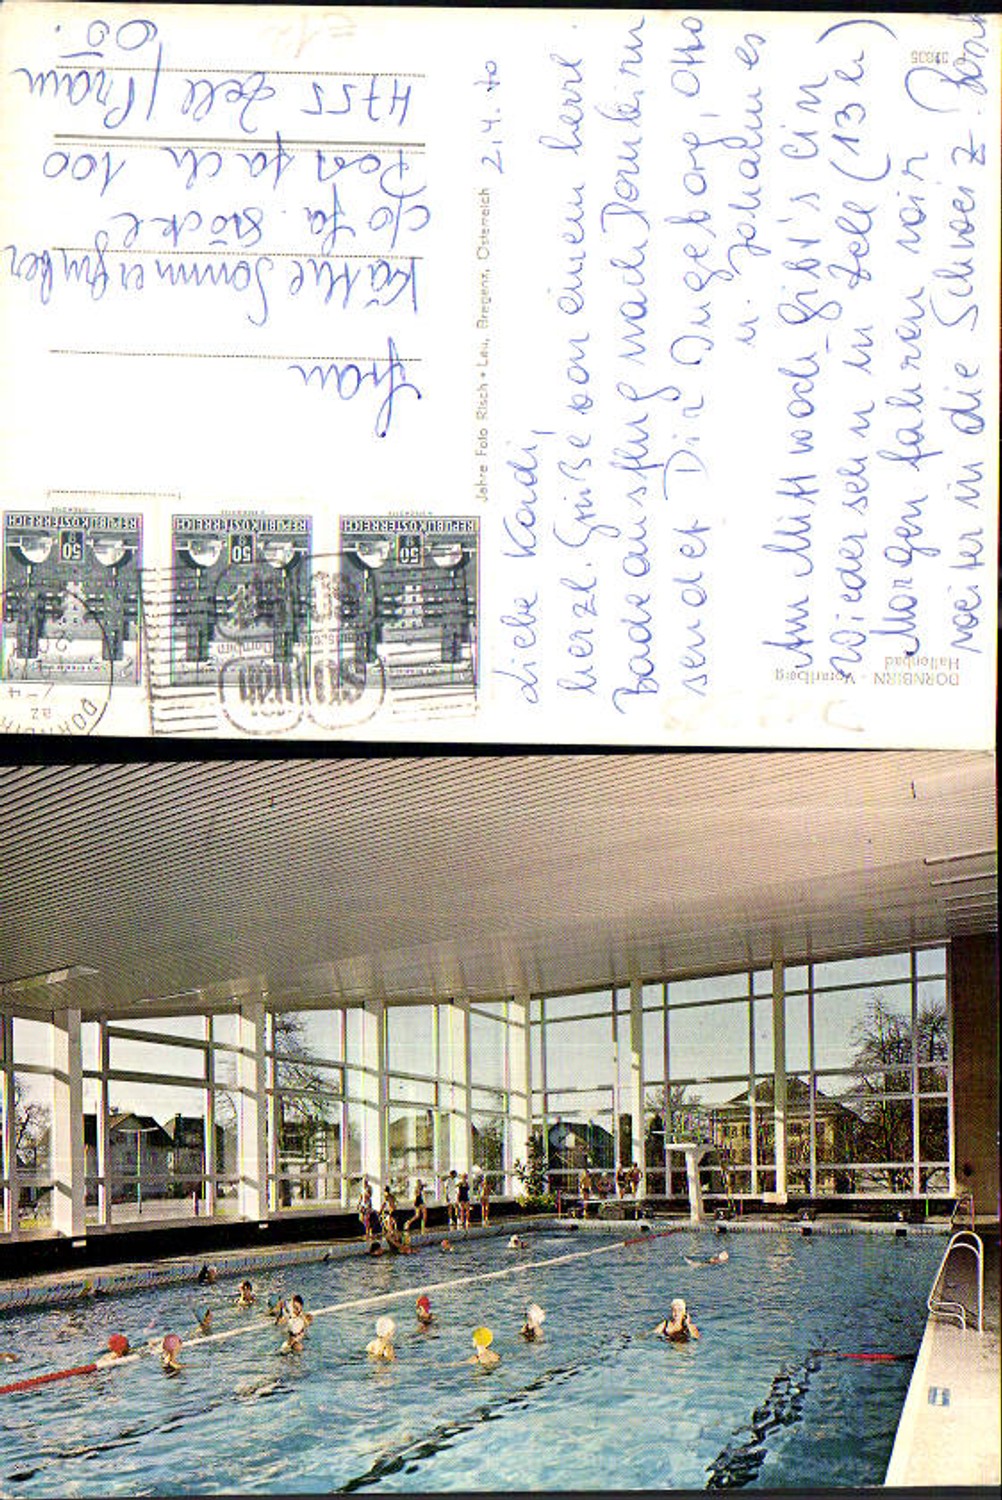 2.4.70
Liebe Kardi,
herzl. Grüße von einem herrl.
Badeausflug nach Dornbirn
sendet Dir Ingeborg, Otto
u. Johannes
Am Mittwoch gibt's ein
Wiedersehen in Zell (13 h)
Morgen fahren wir
weiter in die Schweiz.
Frau
Käthe Sommergruber
c/o Fa. Stöckl
Postfach 100
4755 Zell/Pram
OÖ.
Jahre Foto Risch-Lau, Bregenz, Österreich
DORNBIRN - Vorarlberg
Hallenbad
REPUBLIK ÖSTERREICH
50 g
REPUBLIK ÖSTERREICH
50 g
REPUBLIK ÖSTERREICH
50 g